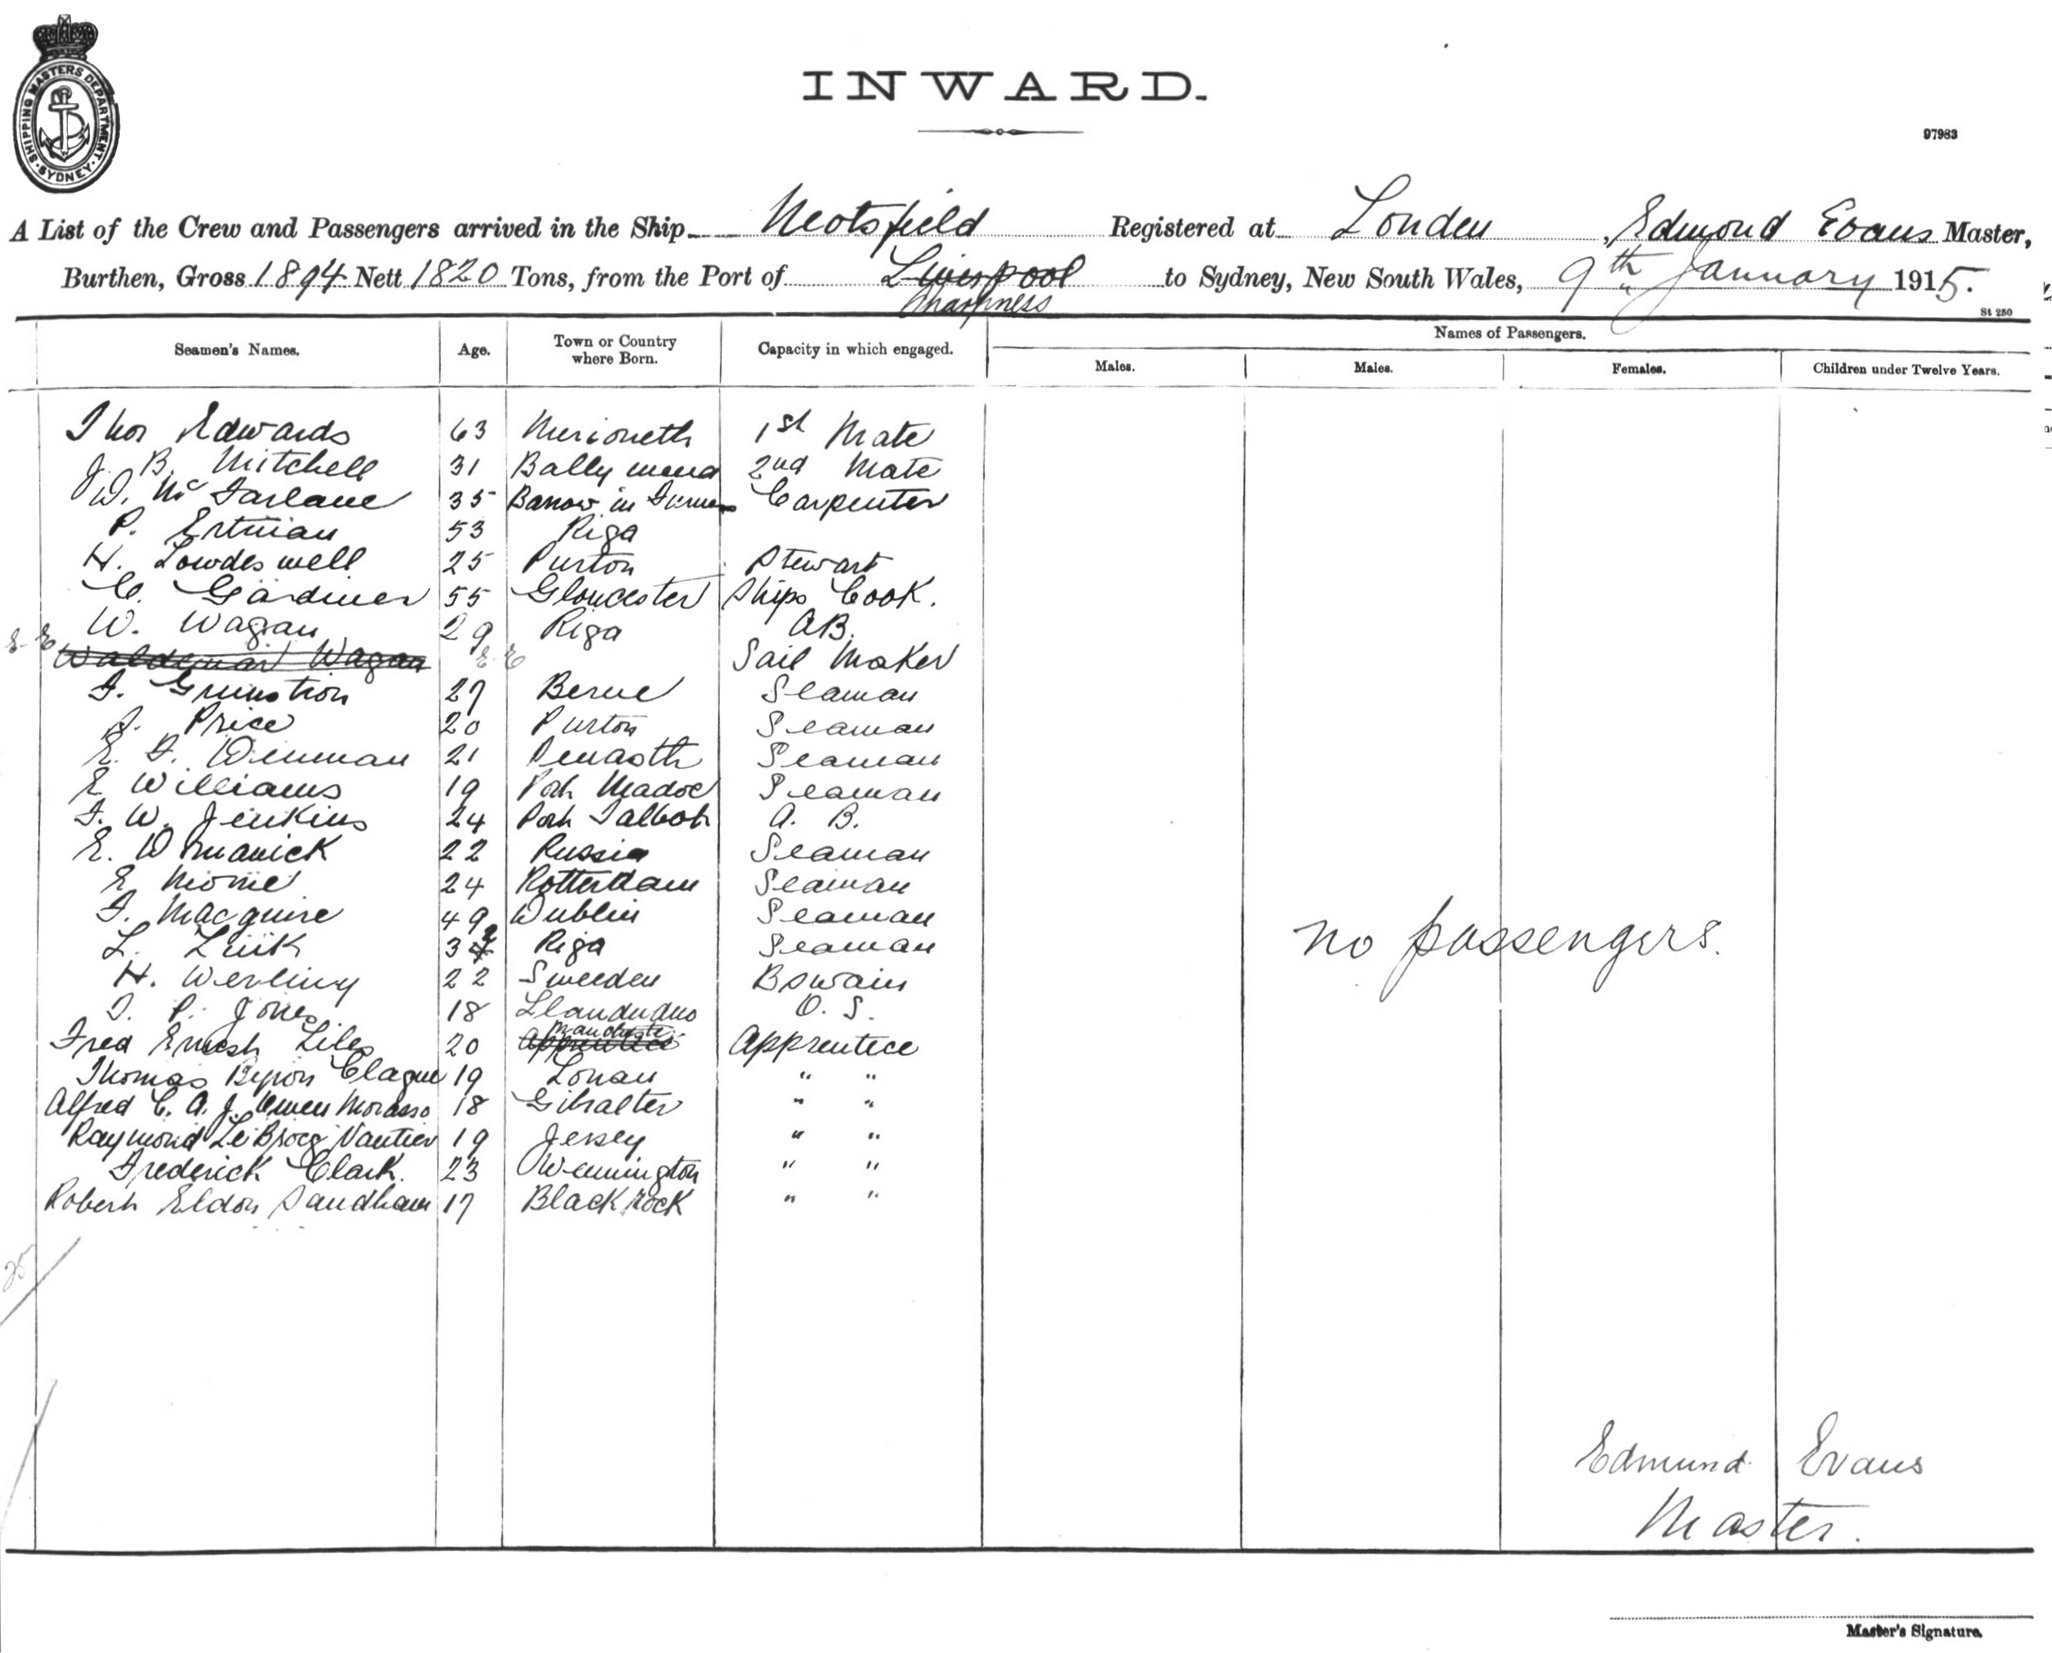 SHIPPING MASTERS DEPARTMENT · SYDNEY ·
INWARD.
97983
A List of the Crew and Passengers arrived in the Ship Neotsfield Registered at London, Edmond Evans Master,
Burthen, Gross 1894 Nett 1820 Tons, from the Port of Liverpool to Sydney, New South Wales, 9th January 1915.
Sharpness
St 250
Seamen's Names. Age. Town or Country where Born. Capacity in which engaged. Names of Passengers.
Males. Males. Females. Children under Twelve Years.
Thos Edwards 63 Merioneth 1st Mate
J. B. Mitchell 31 Ballymena 2nd Mate
W. Mc Farlane 35 Barrow in Furness Carpenter
P. Ertman 53 Riga
H. Lowdeswell 25 Purton Stewart
C. Gardiner 55 Gloucester Ships Cook.
W. Wagan 29 Riga AB.
E. E. Waldemar Wagan E. E. Sail Maker
F. 27 Berne Seaman
Price 20 Purton Seaman
E. F. 21 Penarth Seaman
E Williams 19 Port Madoc Seaman
F. W. Jenkins 24 Port Talbot A. B.
E. 22 Russia Seaman
E 24 Rotterdam Seaman
F. Macguire 49 Dublin Seaman
L. Link 32 Riga Seaman
H. 22 Sweeden Bswain
P. Jones 18 Llandudno O. S.
Fred Ernest Liles 20 Apprentice Apprentice
Thomas Byron Clague 19 Lonan " "
Alfred C. A. J. Owen Morasso 18 Gibralter " "
Raymond Le Brocq Vautier 19 Jersey " "
Frederick Clark. 23 Wennington " "
Robert Eldon Sandham 17 Black rock " "
25
No passengers.
Edmund Evans
Master.
Master's Signature.